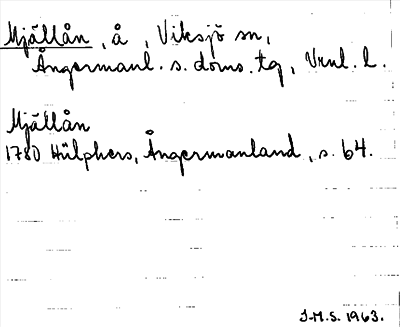 Mjällån, å, Viksjö sn,
Ångermanl. s. doms. tg, Vrnl. l.
Mjällån
1780 Hülphers, Ångermanland, s. 64.
J.M.S. 1963.